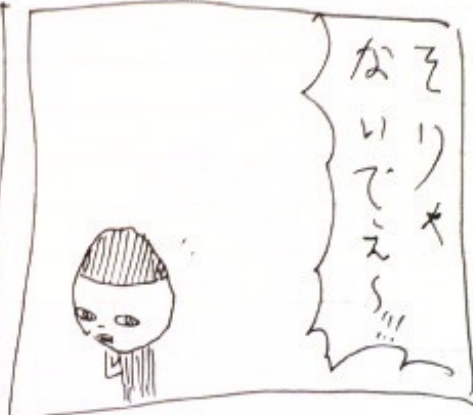 そりゃ
ないでぇ〜!!!